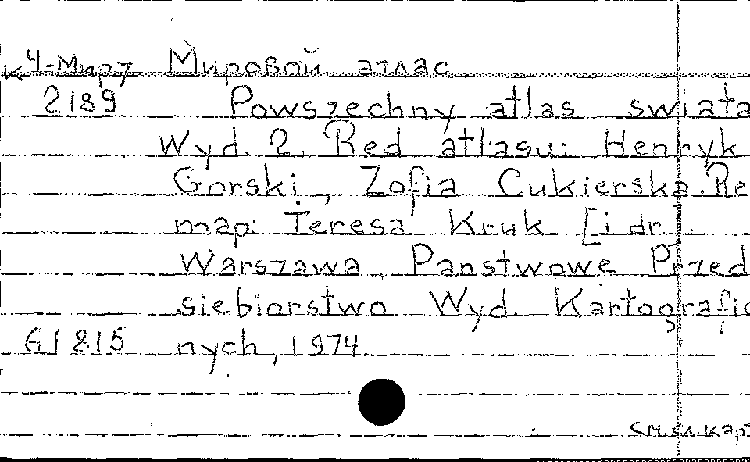 К4-Мир7 Мировой атлас
2189 Powszechny atlas swiata
Wyd. 2. Red atlasu: Henryk
Gorski, Zofia Cukierska. Re
map: Teresa Kruk [i dr.]
Warszawa, Panstwowe Przed
siebiorstwo Wyd. Kartografic
nych, 1974.
61815
см.сл.кар